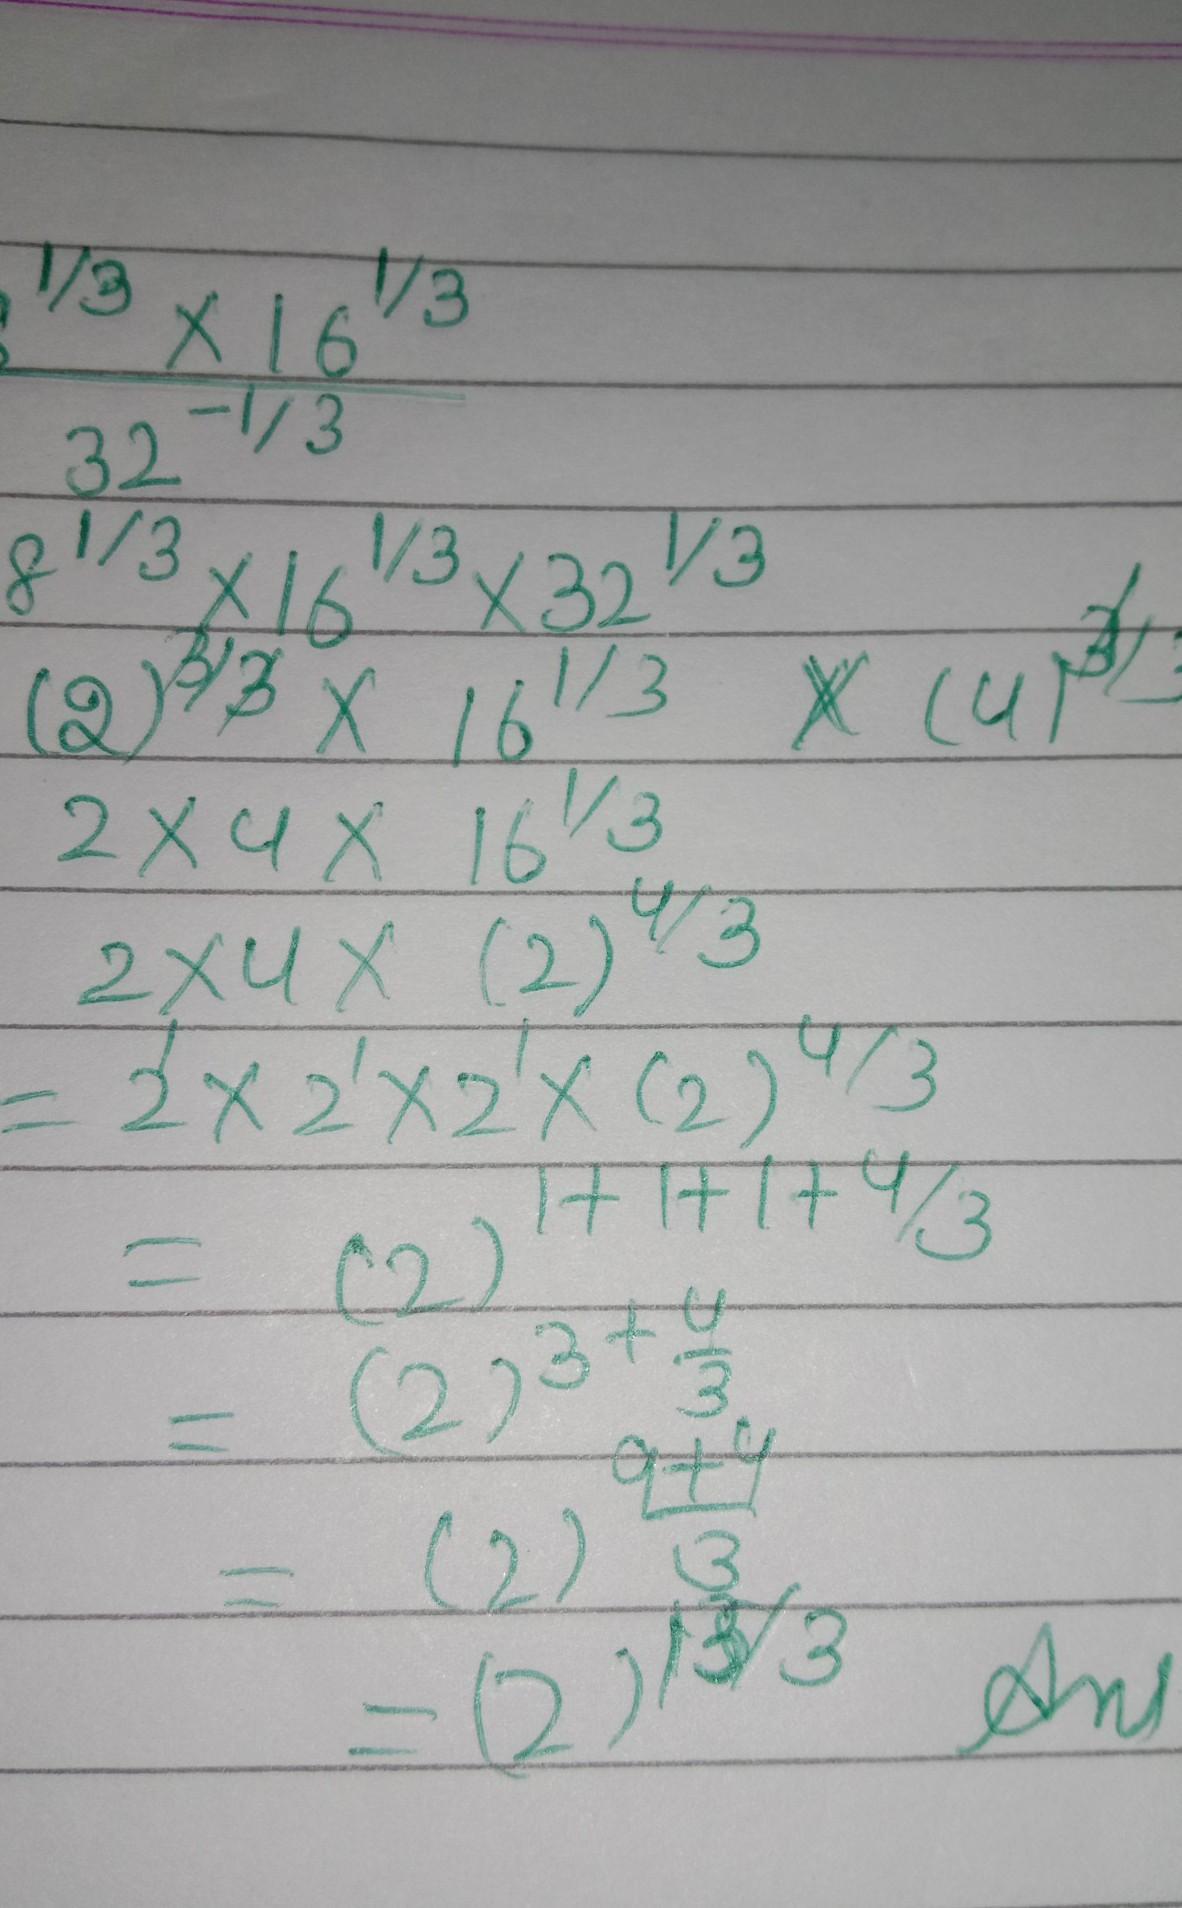 1/3 × 16^1/3
32^-1/3
8^1/3 × 16^1/3 × 32^1/3
(2)^3/3 × 16^1/3 × (4)^3/3
2 × 4 × 16^1/3
2 × 4 × (2)^4/3
= 2^1 × 2^1 × 2^1 × (2)^4/3
= (2)^1+1+1+4/3
= (2)^3+4/3
= (2)^9+4/3
= (2)^13/3 Ans